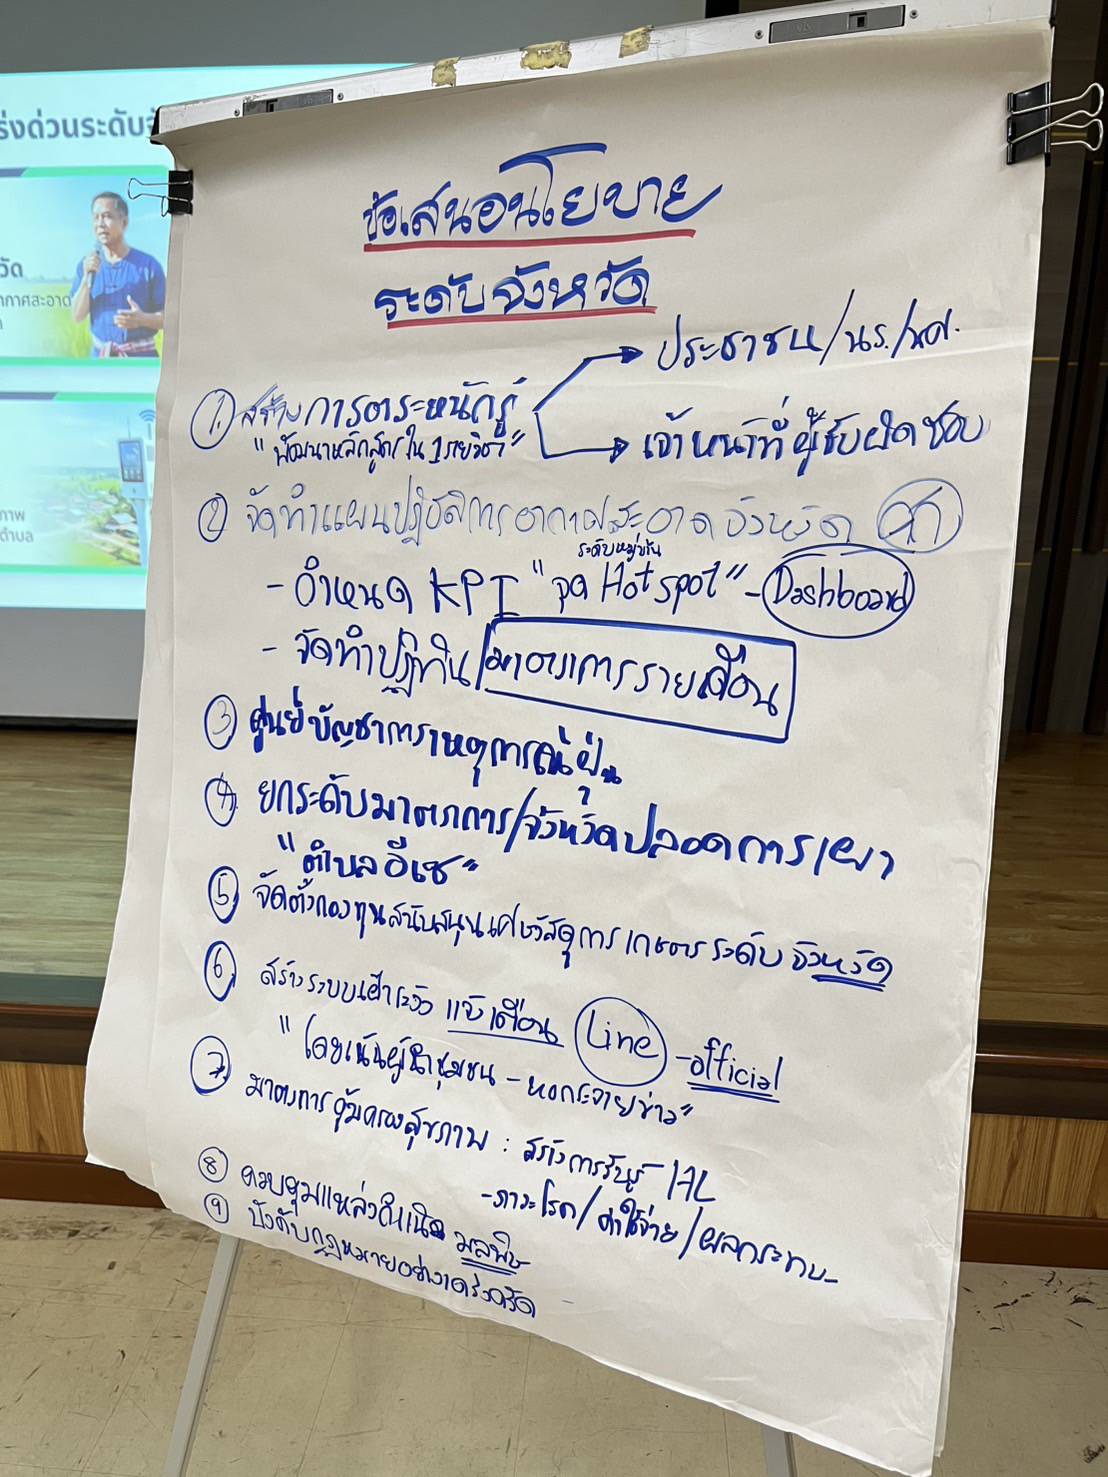 ร่งด่วนระดับ
วัด
ากาศสะอาด
ภาพ
ตำบล
ข้อเสนอนโยบาย
ระดับจังหวัด
① สร้างการตระหนักรู้
→ ประชาชน/นร./นศ.
→ เจ้าหน้าที่ผู้รับผิดชอบ
"พัฒนาหลักสูตรใน 1 รายวิชา"
② จัดทำแผนปฏิบัติการอากาศสะอาดจังหวัด
ระดับหมู่บ้าน
- กำหนด KPI "จุด Hotspot" - Dashboard
- จัดทำปฏิทิน/มาตรการรายเดือน
③ ศูนย์บัญชาการเหตุการณ์ฝุ่น
④ ยกระดับมาตรการ/จังหวัดปลอดการเผา
"ตำบลอีเซ"
⑤ จัดตั้งกองทุนสนับสนุนเศษวัสดุการเกษตรระดับจังหวัด
⑥ สร้างระบบเฝ้าระวัง แจ้งเตือน Line - official
"โดยเน้นผู้นำชุมชน - หอกระจายข่าว"
⑦ มาตรการคุ้มครองสุขภาพ : สร้างการรับรู้ HL
- ภาวะโรค/ค่าใช้จ่าย/ผลกระทบ -
⑧ ควบคุมแหล่งกำเนิด มลพิษ
⑨ บังคับกฎหมายอย่างเคร่งครัด